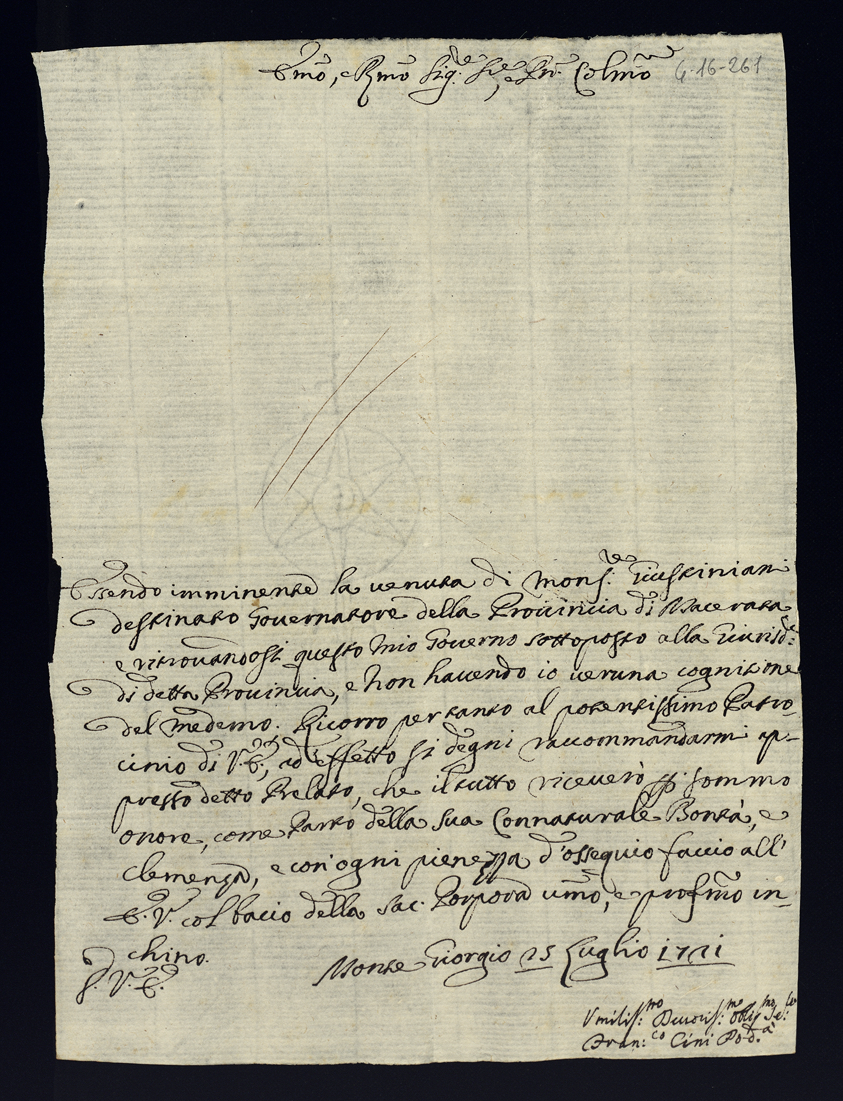 Emo, e Rmo Sig.re Sre, e Pn. Colmo 4-16-261
Essendo imminente la venuta di Mons.re Giustiniani
destinato Governatore della Provincia di Macerata
e ritrovandosi questo mio Governo sottoposto alla Giurisd.e
di detta Provincia, e non havendo io veruna cognitione
del medemo. Ricorro per tanto al potentissimo Patro-
cinio di V.E., ad effetto si degni raccommandarmi ap-
presso detto Prelato, che il tutto riceverò p sommo
onore, come Parto della sua Connaturale Bontà, e
Clemenza, e con ogni pienezza d'ossequio faccio all'
E.V. col bacio della Sac. Porpora umo, e profmo in-
chino.
D. V. E. Monte Giorgio 15 Luglio 1711
Vmilis.mo Devotis.mo Oblig.mo Se.re
Fran.co Cini Pod.à